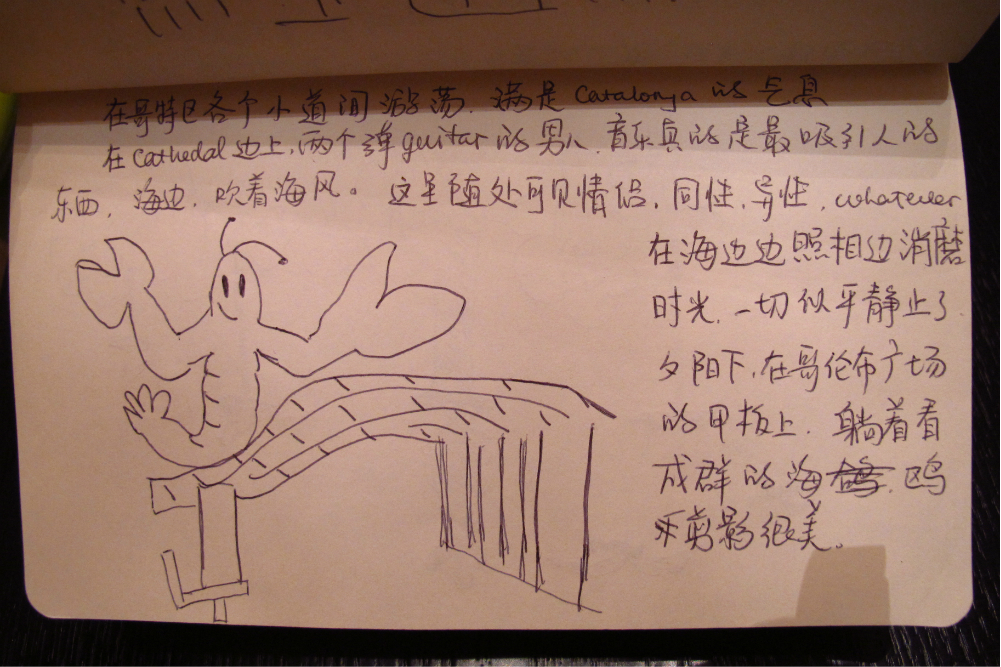 在哥特巴各个小道间游荡，满是Catalonya的气息
在Cathedal边上，两个弹guitar的男人，音乐真的是最吸引人的
东西，海边，吹着海风。 这里随处可见情侣，同性，异性，whatever
在海边边照相边消磨
时光，一切似乎静止了
夕阳下，在哥伦布广场
的甲板上，躺着看
成群的海鸥
剪影很美。